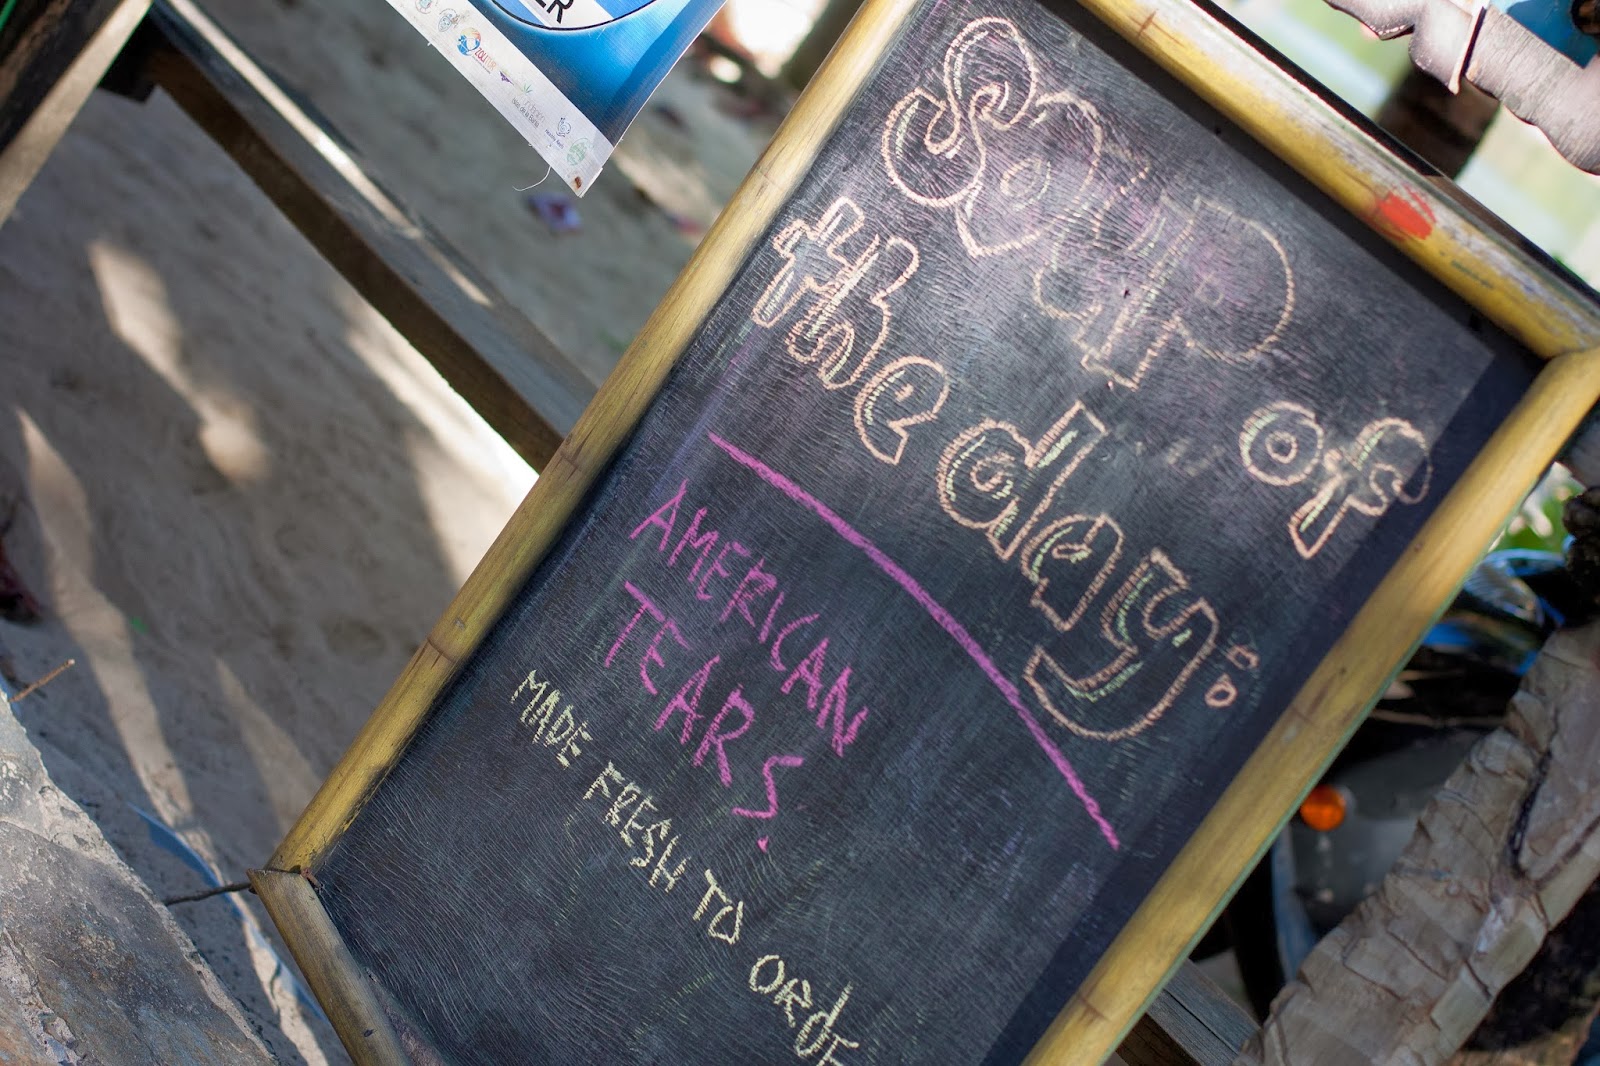 Soup of
the day:
AMERICAN
TEARS.
MADE FRESH TO ORDE